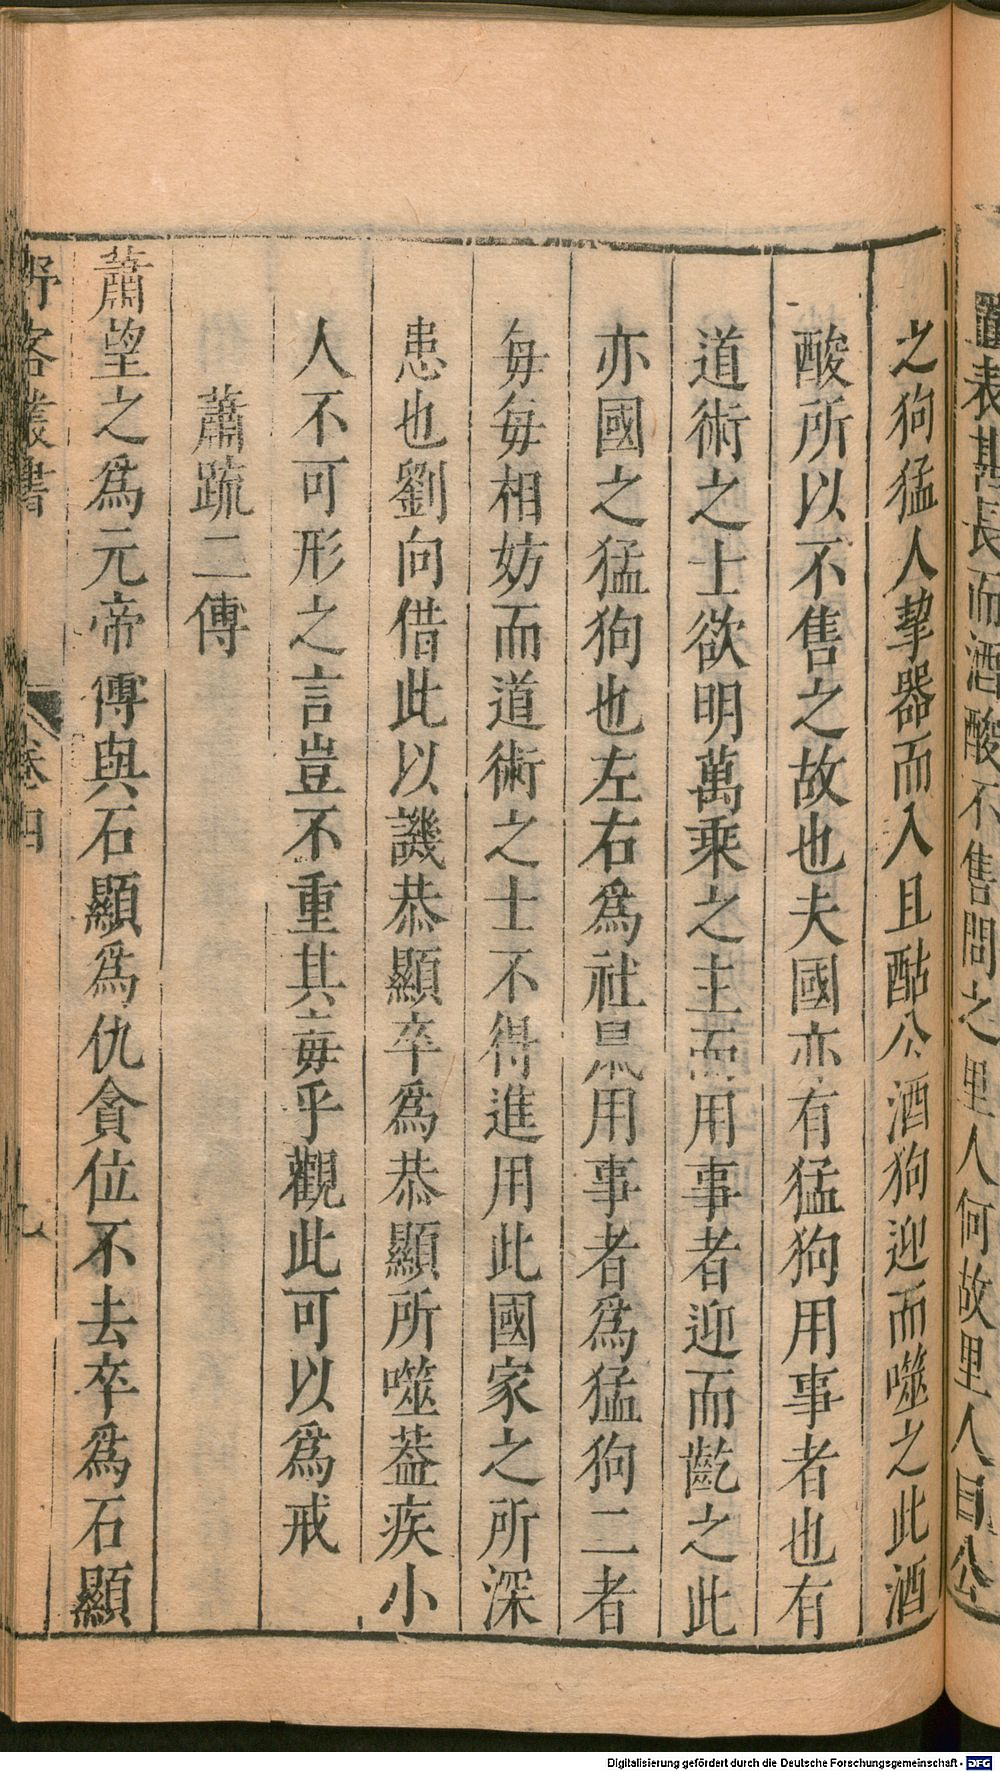 置表甚長而酒酸不售問之里人何故里人曰公
之狗猛人挈器而入且酤公酒狗迎而噬之此酒
酸所以不售之故也夫國亦有猛狗用事者也有
道術之士欲明萬乘之主而用事者迎而齕之此
亦國之猛狗也左右為社鼠用事者為猛狗二者
每每相妨而道術之士不得進用此國家之所深
患也劉向借此以譏恭顯卒為恭顯所噬葢疾小
人不可形之言豈不重其毒乎觀此可以為戒
蕭疏二傳
蕭望之為元帝傅與石顯為仇貪位不去卒為石顯
野客叢書 卷四 九
Digitalisierung gefördert durch die Deutsche Forschungsgemeinschaft - DFG